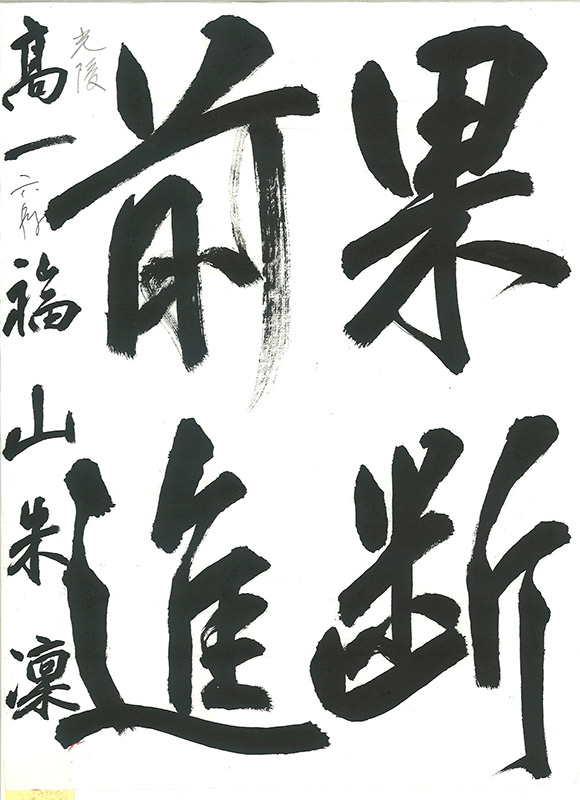 果断
前進
高一 福山朱凜
光陵
六段